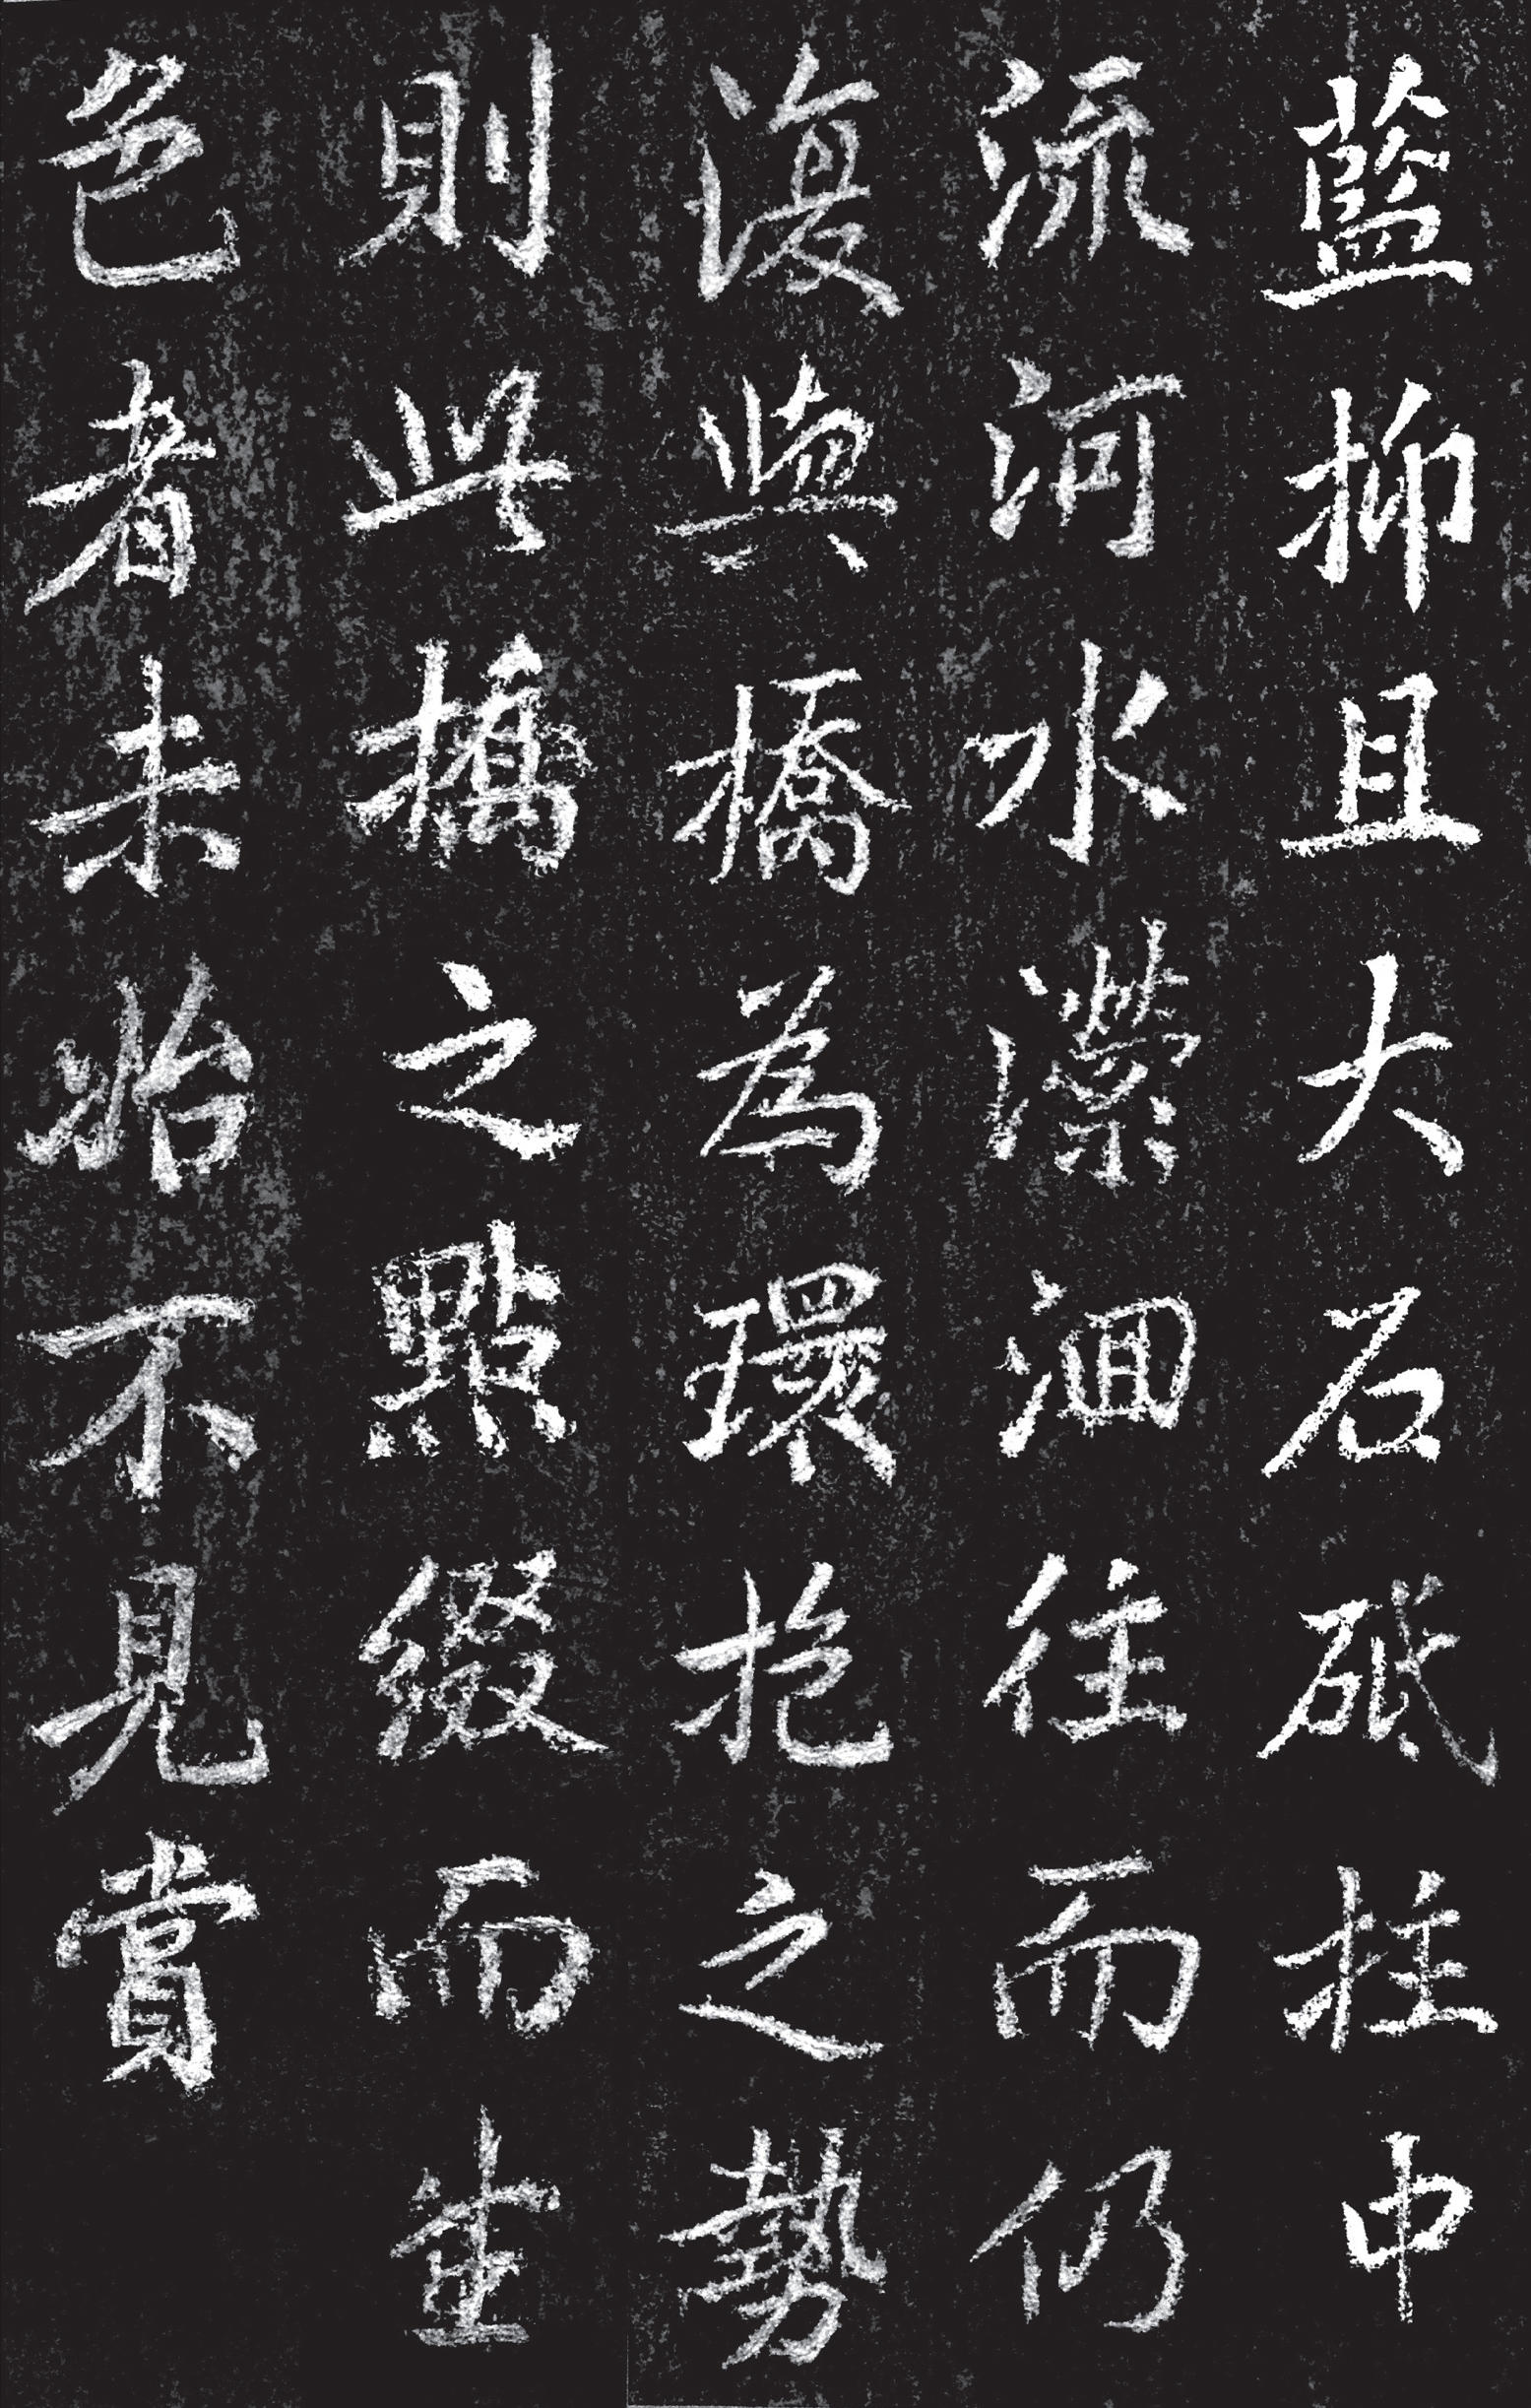 藍抑且大石砥拄中
流河水濴洄往而仍
澓與橋為環抱之勢
則此橋之點綴而生
色者未始不見賞